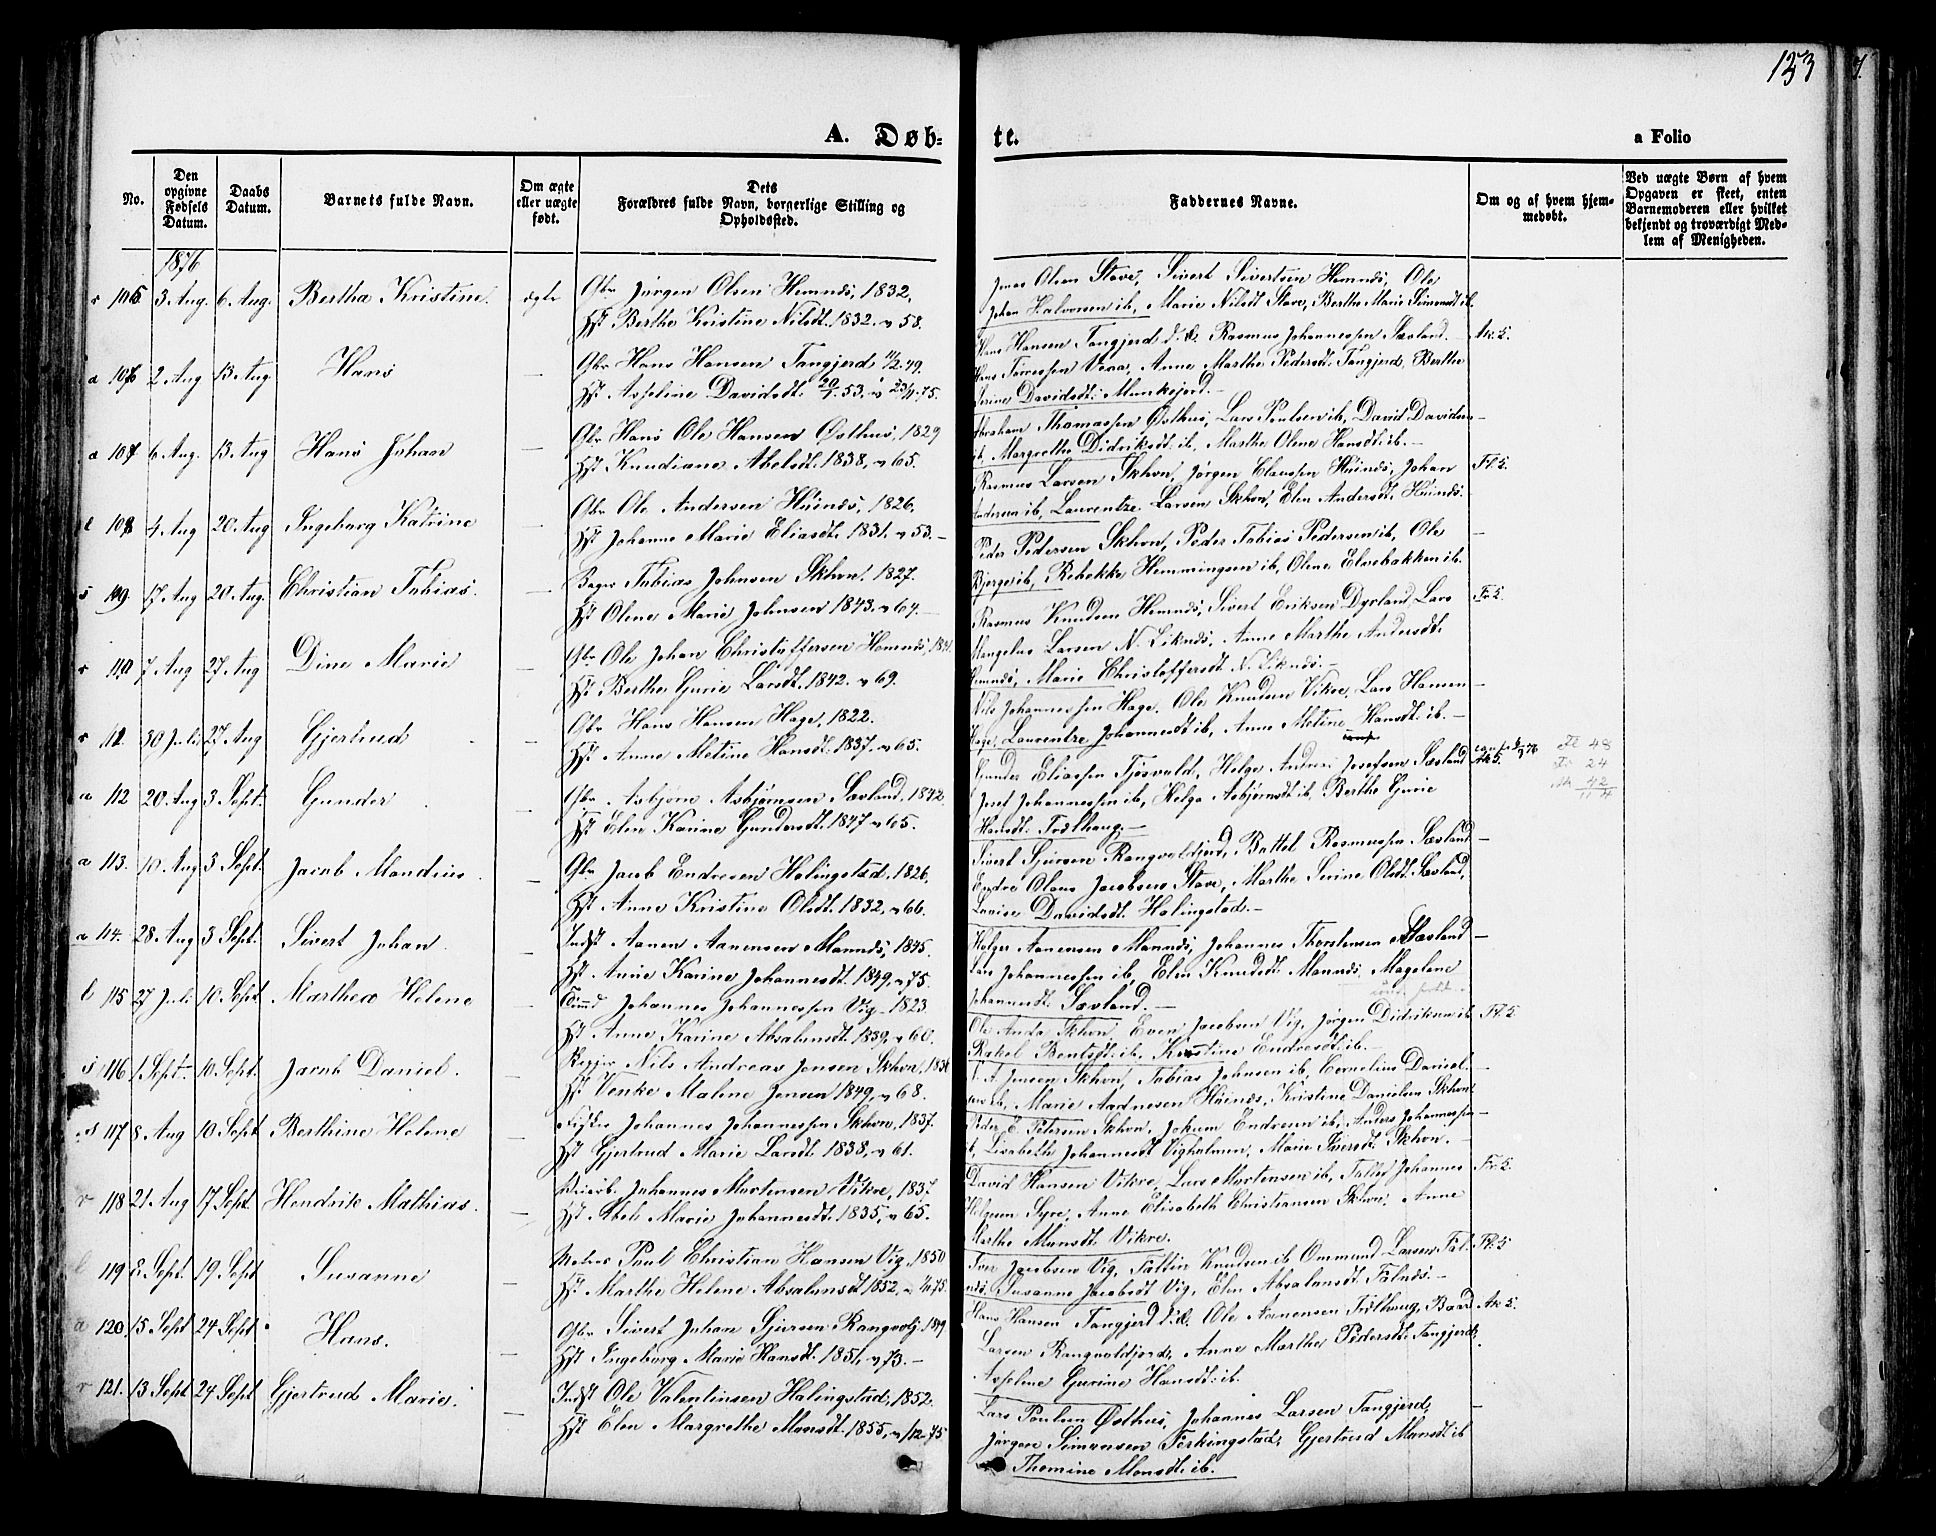 153
A. Døb-
te.
a Folio
No.
Den opgivne Fødsels Datum.
Daabs Datum.
Barnets fulde Navn.
Om ægte eller uægte født.
Dets Forældres fulde Navn, borgerlige Stilling og Opholdssted.
Faddernes Navne.
Om og af hvem hjemmedøbt.
Ved uægte Børn af hvem Opgaven er skeet, enten Barnemoderen eller hvilket bekjendt og troværdigt Medlem af Menigheden.
1876
r 105 3 Aug. 6 Aug. Bertha Kristine. ægte Gbr Jørgen Olsen Hemnes, 1832,
Hst Berthe Kristine Nilsdt. 1832. v 58.
Olsen Stave, Sivert Sivertsen Hemnes, Ole
Johan Halvorsen ib, Marie Nilsdt Stave, Berthe Marie Simonsdt ib.
a 106 2 Aug 13 Aug Hans — Gbr Hans Hansen Tangjerd 11/2.49.
Hst Axeline Davidsdt. 20/7.53, v 23/4.75.
Hans Hansen Tangjerd d.æ. Rasmus Johannessen Sævland. Ak. 5.
Hans Vea, Anne Marthe Pedersdt. Tangjerd, Berthe
Serine Davidsdt. Munkejord.
a 107 6 Aug. 13 Aug Hans Johan — Gbr Hans Ole Hansen Østhus, 1829
Hst Knudiane Abelsdt. 1838, v 65.
Abraham Thomassen Østhus, Lars Poulsen ib, David Davidsen —
ib, Margrethe Didriksdt. ib, Marthe Oline Hansdt. ib. —
l 108 4 Aug 20 Aug Ingeborg Katrine — Gbr Ole Andersen Hüinds, 1826,
Hst Johanne Marie Eliasdt. 1831. v 53. —
Rasmus Larsen Skhvn, Jørgen Claussen Hüinds, Johan Fl. 5.
Andersen ib, Laurentze Larsen Skhvn, Elen Andersdt. Hüinds.
s 109 17 Aug 20 Aug. Christian Tobias. — Tobias Johnsen Skhvn. 1827.
Hst Oline Marie Johnsen 1843. v 64. —
Peder Pedersen Skhvn, Peder Tobias Pedersen ib, Ole —
Bjerge ib, Rebekke Hemmingsen ib, Oline Elvebakken ib.
r 110 7 Aug 27 Aug Dine Marie — Gbr Ole Johan Christoffersen Hemnes,
Hst Berthe Gurie Larsdt. 1842. v 69.
Rasmus Knudsen Hemnes, Sivert Eriksen Dyrland, Lars Fr. 5.
Mangelus Larsen N. Liknes, Anne Marthe Andersdt.
Hemnes, Marie Christoffersdt N. Liknes. —
r 111 30 Juli 27 Aug Gjertrud — Gbr Hans Hansen Hage, 1822.
Hst Anne Metine Hansdt. 1837. v 65.
Nils Johannessen Hage, Ole Knudsen Vikre, Lars Hansen —
Hage, Laurentze Johannesdt ib, Anne Metine Hansdt. ib. —
a 112 20 Aug 3 Sept. Gunder — Gbr Asbjørn Asbjørnsen Sævland, 1842,
Hst Elen Karine Gundersdt. 1847 v 65.
Gunder Eliassen Tjøsvold, Helge Andreas Josefsen Sævland Ak 5.
Josef Johannessen ib, Helga Asbjørnsdt ib, Berthe Gurie
Hansdt. Todlhaug —
Fl 48
Fr 24
Ak 42
114
a 113. 10 Aug 3 Sept. Jacob Mandius. — Gbr Jacob Endresen Halingstad. 1826.
Hst Anne Kristine Olsdt. 1832, v 66.
Sivert Sjursen Rangvaldjord, Battel Rasmussen Sævland —
Endre Olaus Jacobsen Stave, Marthe Serine Olsdt. Sævland,
Lovise Davidsdt. Halingstad. —
a 114. 28 Aug 3 Sept. Sivert Johan. — Indst Aanen Aanensen Mannes, 1845.
Hst Anne Karine Johannesdt. 1849, v 75.
Holger Aanensen Mannes, Johannes Thorstensen Sævland —
Lars Johannessen ib, Elen Knudsdt. Mannes, Magelene
Johannesdt. Sævland. —
l 115 27 Juli 10 Sept. Marthea Helene — Johannes Johannessen Vig - 1823
Hst Anne Karine Absalonsdt. 1839, v 60.
Ole Skhvn, Even Jacobsen Vig, Jørgen Didriksen ib Fl. 5.
Rakel Bentsdt. ib, Kristine Endresdt. ib. —
s 116 1 Sept. 10 Sept. Jacob Daniel. — Nils Andreas Jensen Skhvn, 1836
Hst Venke Malene Jensen 1849, v 68.
Jensen Skhvn, Tobias Johnsen ib, Cornelius Daniel- —
sen ib, Marie Aadnesen Hüinds, Kristine Danielsen Skhvn.
s 117 8 Aug 10 Sept. Berthine Helene — Fisker Johannes Johannessen Skhvn, 1837.
Hst Gjertrud Marie Larsdt. 1838, v 61.
Peder E. Petersen Skhvn, Jokum Endresen ib, Anders Johannessen —
ib, Lisabeth Johannesdt Vigholmen, Marie Iversdt. Skhvn. —
r 118 21 Aug 17 Sept. Hendrik Mathias. — Johannes Mortensen Vikre, 1837
Hst Abele Marie Johannesdt. 1835, v 65.
David Hansen Vikre, Lars Mortensen ib, Tallef Johannes Fr. 5.
Helgesen Syre, Anne Elisabeth Christiansen Skhvn, Anne
Marthe Monsdt. Vikre.
l 119 2 Sept. 19 Sept Susanne — Paul Christian Hansen Vig, 1850
Hst Marthe Helene Absalonsdt 1852, v 75.
Iver Jacobsen Vig, Knudsen ib, Ommund Larsen Fal- Fl. 5
nes, Susanne Jacobsdt Vig, Elen Absalonsdt. Falnes. —
a 120 15 Sept 24 Sept. Hans. — Gbr Sivert Johan Sjursen Rangvaldj. 1849
Hst Ingeborg Marie Hansdt. 1851, v 73. —
Hans Hansen Tangjerd d.æ. Ole Aanensen Todlhaug, Baard Ak 5.
Larsen Rangvaldjord, Anne Marthe Pedersdt. Tangjerd,
Axeline Gurine Hansdt. ib.
r 121. 13 Sept 24 Sept Gjertrud Marie. — Indst Ole Valentinsen Halingstad, 1852.
Hst Elen Margrethe Monsdt. 1855, v /12.75
Lars Poulsen Østhus, Johannes Larsen Tangjerd, —
Jørgen Simonsen Ferkingstad, Gjertrud Monsdt ib
Thomine Monsdt. ib.